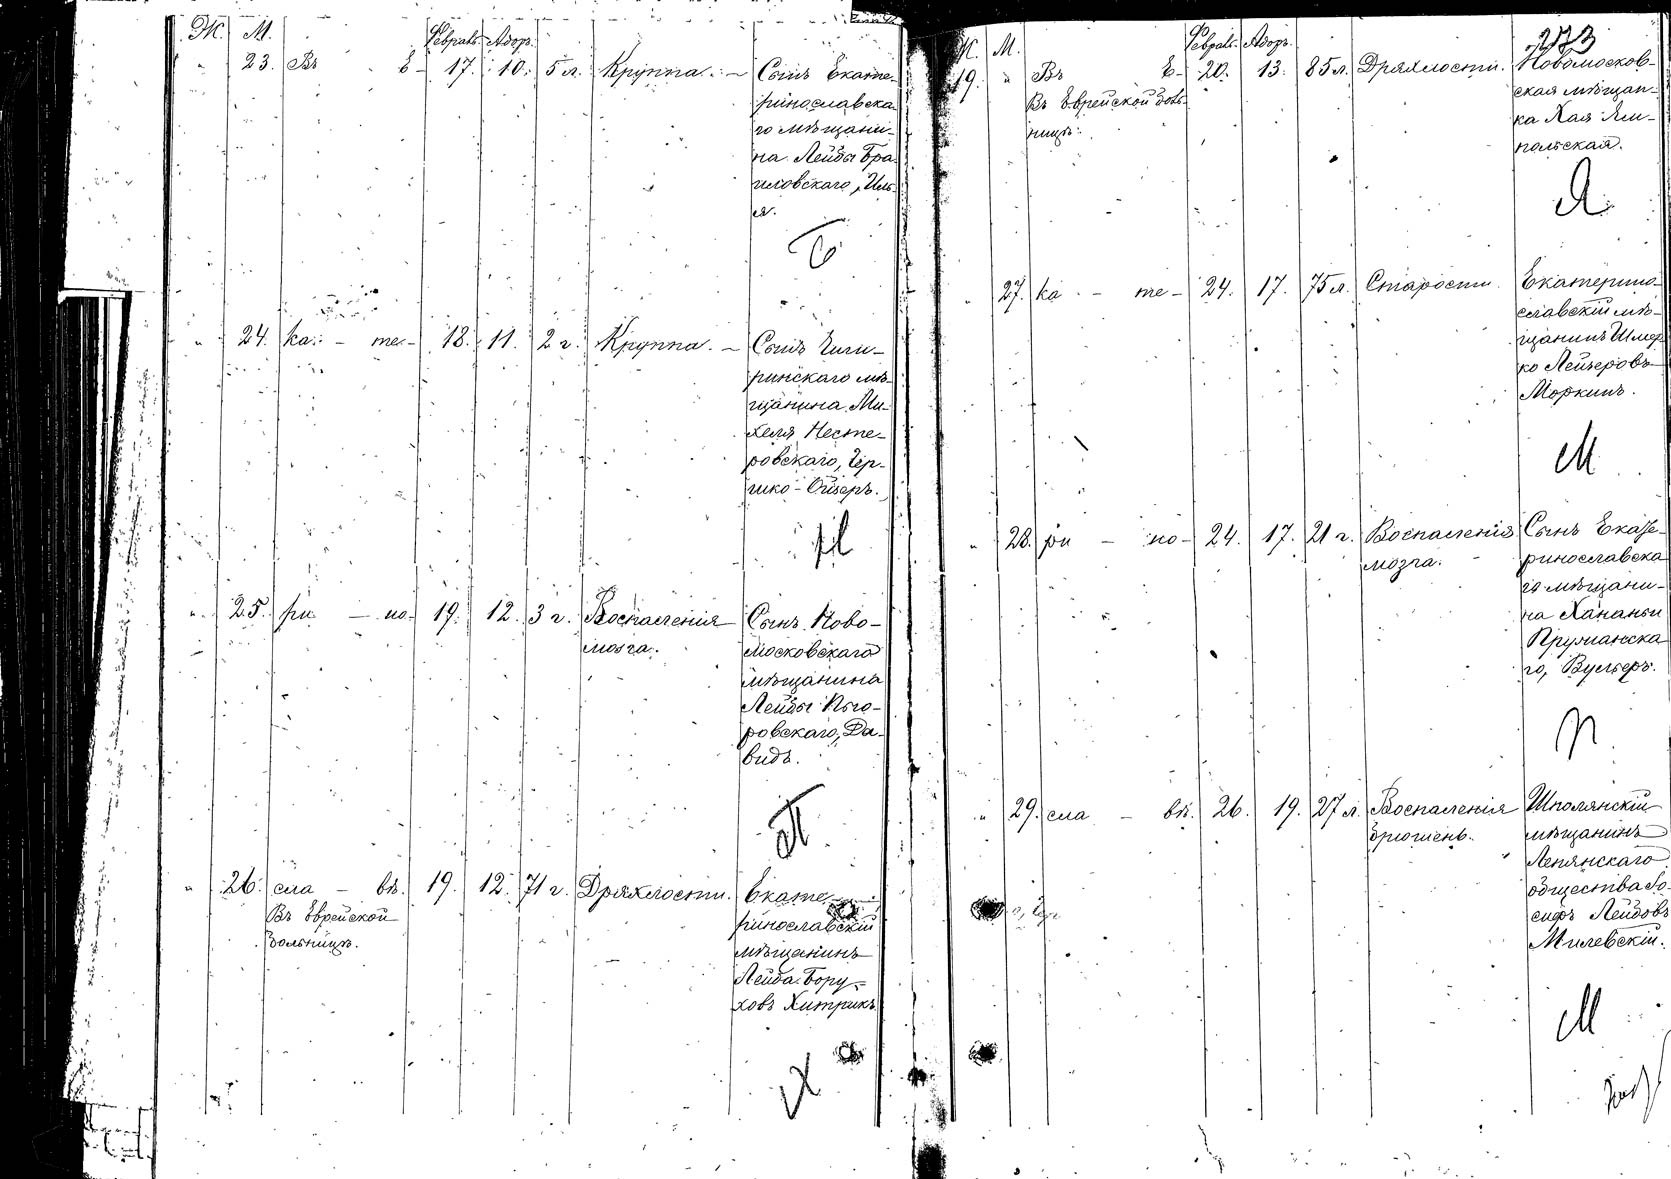 Ж. М. Февраль. Адоръ.
„ 23. Въ Е- 17. 10. 5 л. Круппа. – Сынъ Екате-
ринославска
го мѣщани-
на Лейбы Бра
иловскаго, Иль-
я.
Б
„ 24. ка - те- 18. 11. 2 г. Круппа. – Сынъ Чиги-
ринскаго мѣ-
щанина Ми-
хеля Несте-
ровскаго, Гер-
шко-Ойзеръ.
Н
„ 25. ри - но- 19. 12. 3 г. Воспаленія Сынъ Ново-
мозга. московскаго
мѣщанина
Лейбы
ровскаго, Да-
видъ.
П
„ 26. сла - вѣ. 19. 12. 71 г. Дряхлости. Екате-
Въ Еврейской ринославскій
больницѣ. мѣщанинъ
Лейба Бору-
ховъ Хитрикъ
Х
273
Ж. М. Февраль. Адоръ.
19. „ Въ Е- 20. 13. 85 л. Дряхлости. Новомосков-
Въ Еврейской боль- ская мѣщан-
ницѣ. ка Хая Ям-
польская.
Я
„ 27. ка - те- 24. 17. 75 л. Старости. Екатерино-
славскій мѣ-
щанинъ Шмер
ко Лейзеровъ
Моркинъ.
М
„ 28. ри - но- 24. 17. 21 г. Воспаленія Сынъ Екате-
мозга. ринославска
го мѣщани-
на Хананьи
Пружанска
го, Вульфъ.
П
„ 29. сла - вѣ. 26. 19. 27 л. Воспаленія Шполянскій
брюшень. мѣщанинъ
Лепянскаго
общества Іо-
сифъ Лейбовъ
Милевскій.
М